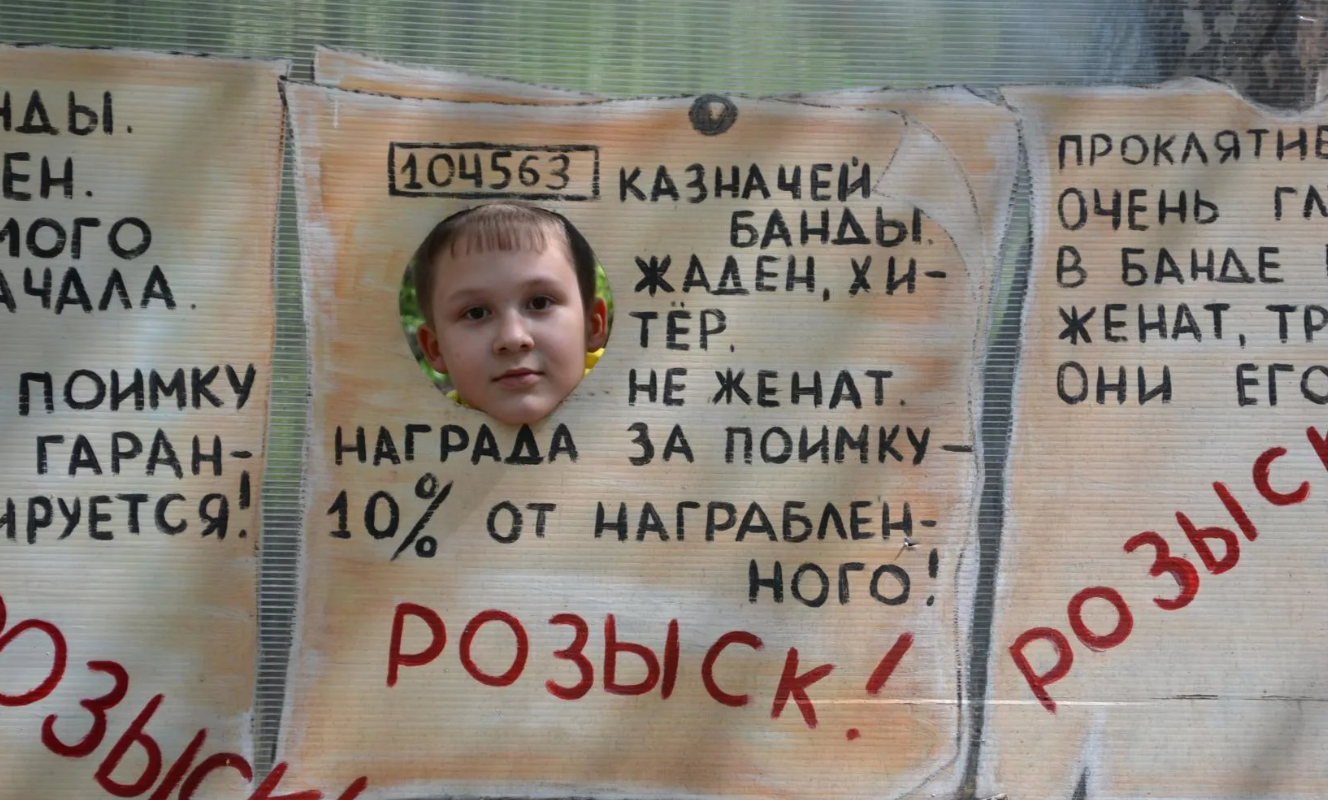 НДЫ.
ЕН.
МОГО
АЧАЛА.
ПОИМКУ
ГАРАН-
ИРУЕТСЯ!
РОЗЫСК!
104563
КАЗНАЧЕЙ
БАНДЫ.
ЖАДЕН, ХИ-
ТЁР.
НЕ ЖЕНАТ.
НАГРАДА ЗА ПОИМКУ-
10% ОТ НАГРАБЛЕН-
НОГО!
РОЗЫСК!
ПРОКЛЯТНЕ
ОЧЕНЬ ГЛ
В БАНДЕ
ЖЕНАТ, ТР
ОНИ ЕГО
РОЗЫСК